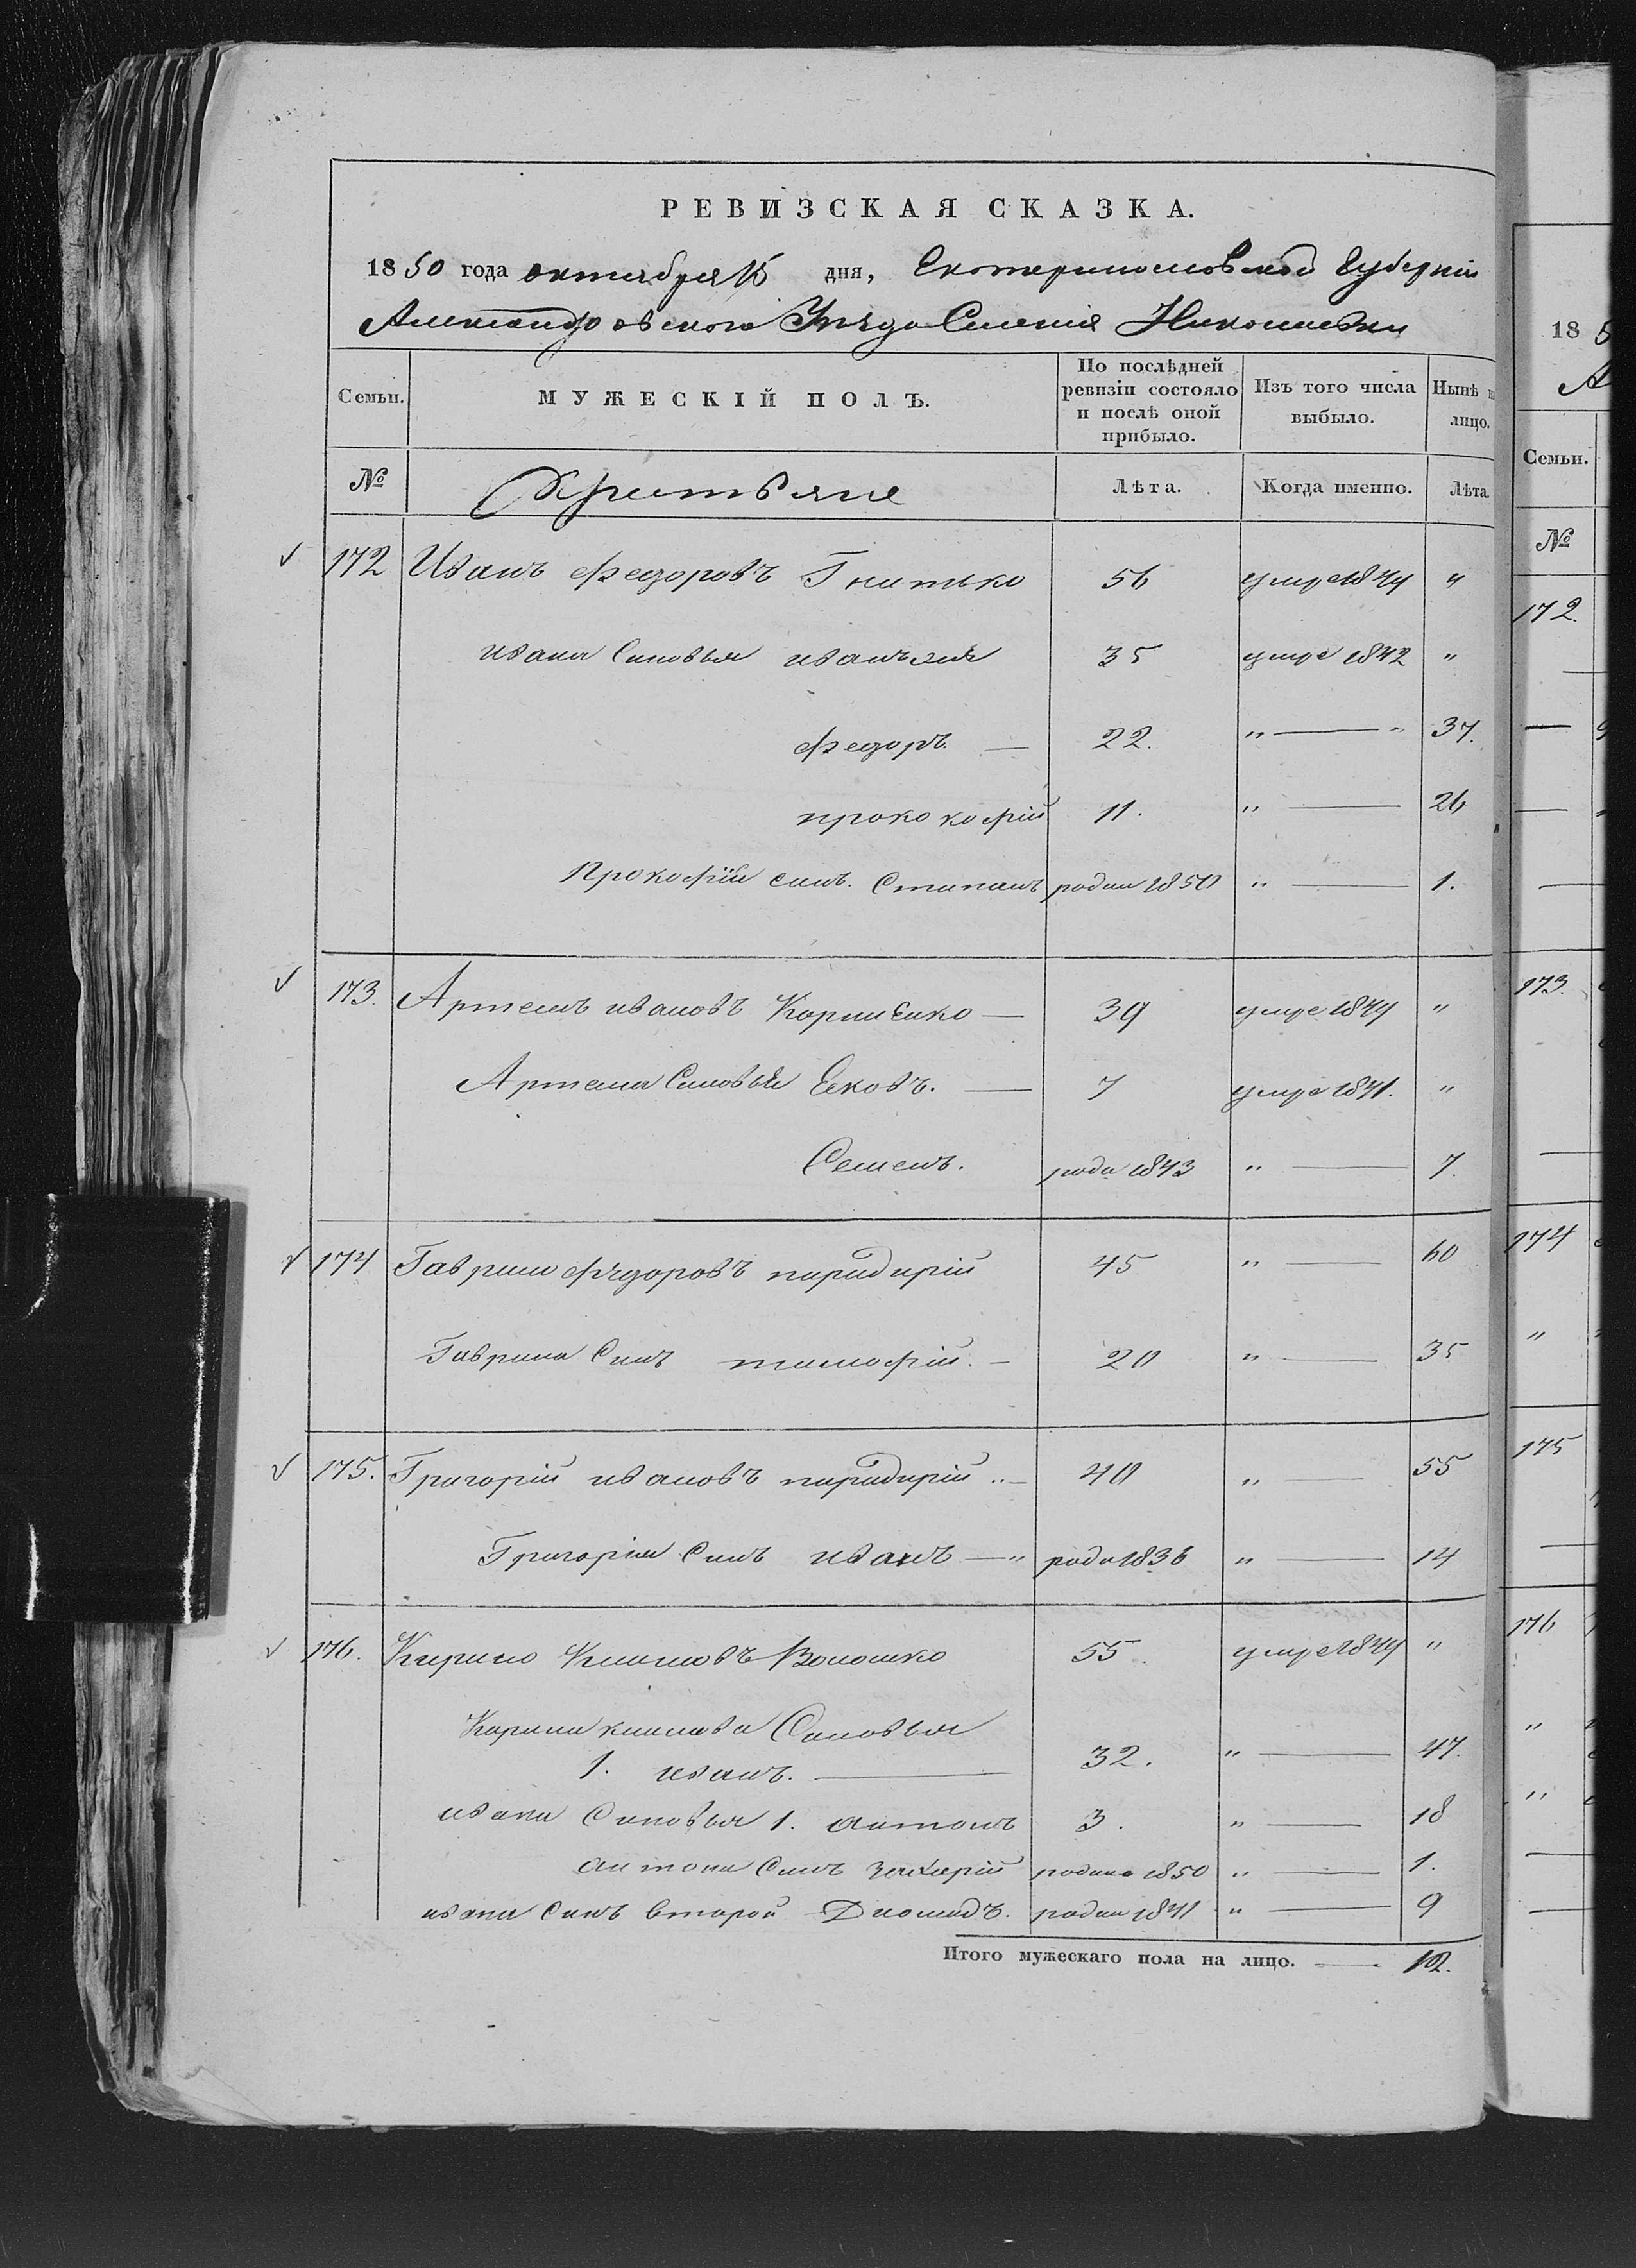 РЕВИЗСКАЯ СКАЗКА.
1850 года октября 15 дня, Екатеринославской Губерніи
Александровского Уѣзда Селенія Николаевки
Семьи. МУЖЕСКІЙ ПОЛЪ. По послѣдней ревизіи состояло и послѣ оной прибыло. Изъ того числа выбыло. Нынѣ н лицо.
№ Крестьяне Лѣта. Когда именно. Лѣта.
172 Иванъ Федоровъ Гнитько 56 умре 1849 "
ивана Синовья иванъ 35 умре 1842 "
Федоръ — 22. " — " 37.
прококофій 11. " — 26
Прокофія синъ. Степанъ родил 1850 " — 1.
173. Артемъ ивановъ Корниенко — 39 умре 1849 "
Артема Синовья Еековъ. — 7 умре 1841. "
Семенъ. роди 1843 " — 7.
174 Гаврило Фѣдоровъ 45 " — 60
Гаврила Синъ тимофій. — 20 " — 35
175. Григорій ивановъ 40 " — 55
Григорія Синъ иванъ — " роди 1836 " — 14
176. Кирило Климовъ Волошко 55. умре 1849 "
Кирила климова Синовья
1. иванъ. — 32. " — 47.
ивана Синовья 1. антонъ 3. " — 18
антона Синъ захарій родил 1850 " — 1.
ивана Синъ второй Диомидъ. родил 1841 " — 9
Итого мужескаго пола на лицо. — 12.
18 5
А
Семьи.
№
172.
173.
174
"
175
176
"
"